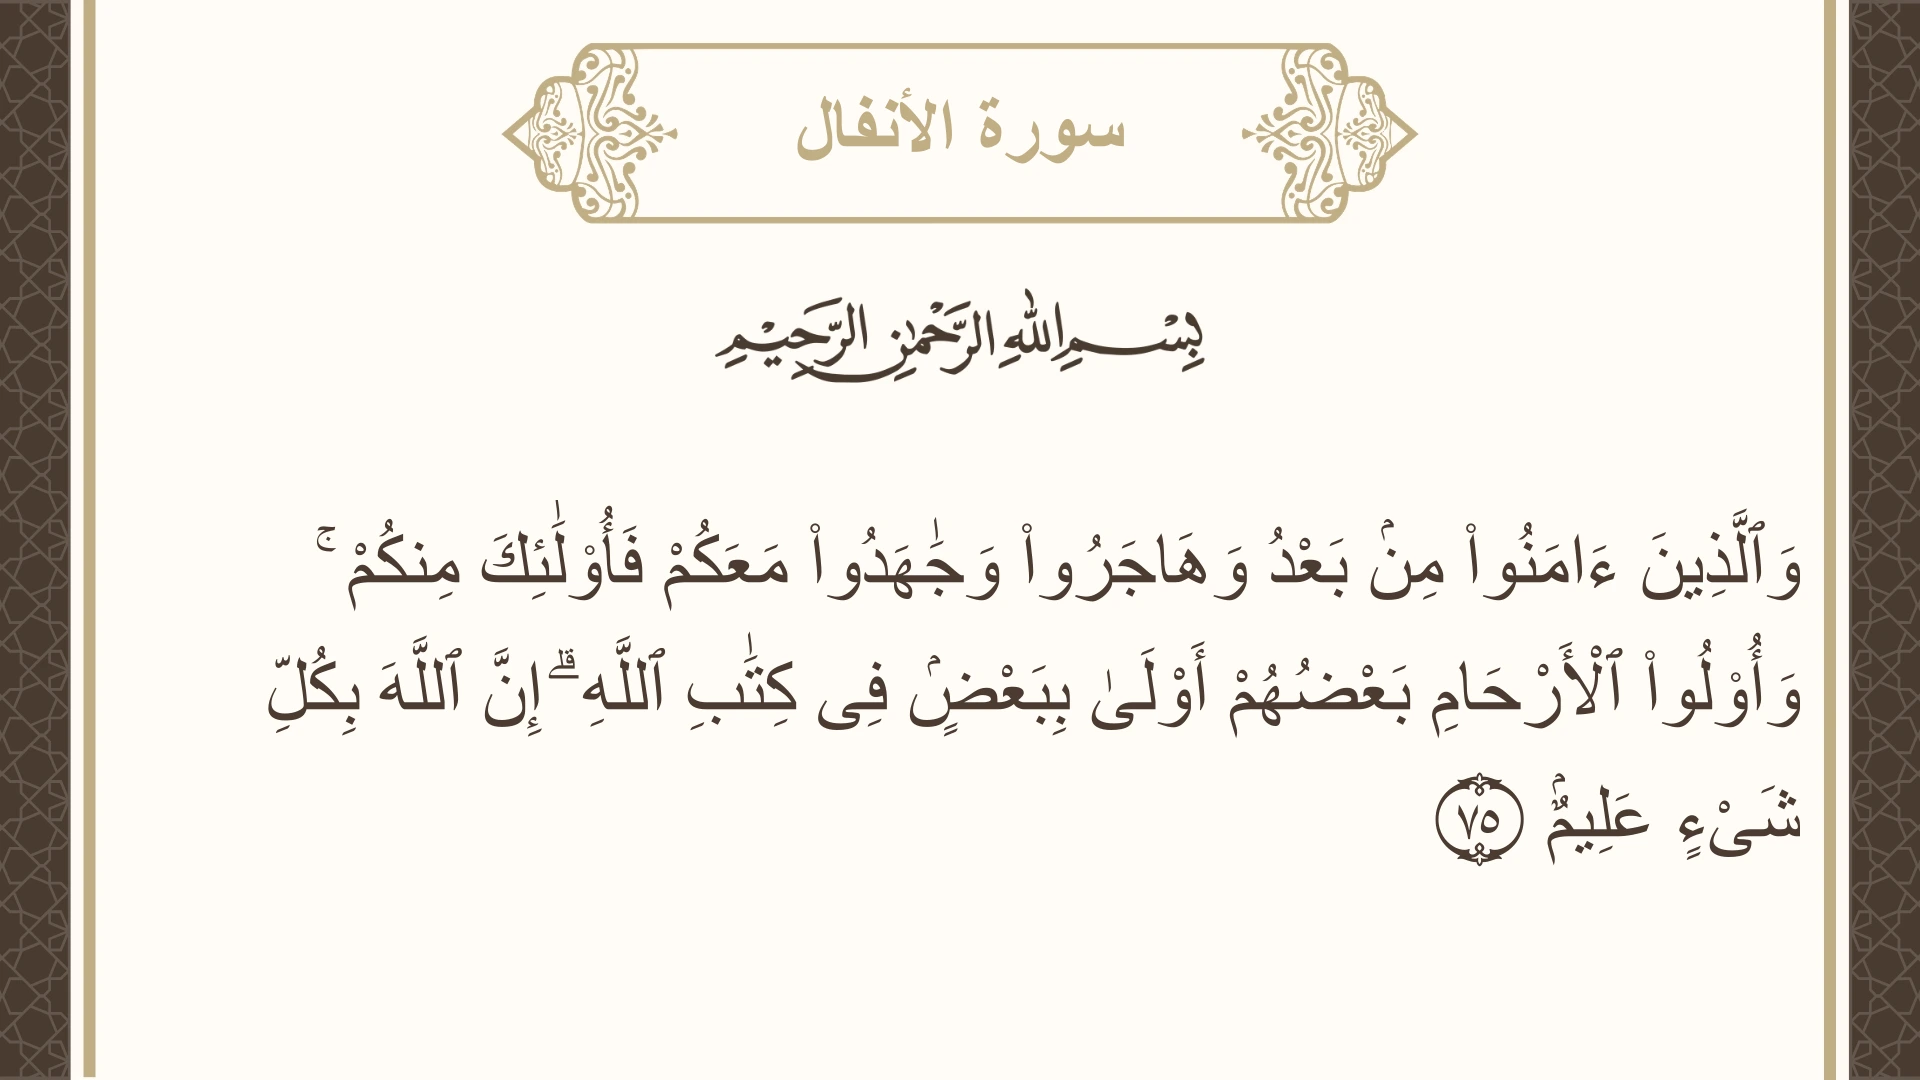 سورة الأنفال
بِسْمِ اللهِ الرَّحْمٰنِ الرَّحِيْمِ
وَٱلَّذِينَ ءَامَنُوا۟ مِنۢ بَعْدُ وَهَاجَرُوا۟ وَجَٰهَدُوا۟ مَعَكُمْ فَأُو۟لَٰٓئِكَ مِنكُمْ ۚ
وَأُو۟لُوا۟ ٱلْأَرْحَامِ بَعْضُهُمْ أَوْلَىٰ بِبَعْضٍۢ فِى كِتَٰبِ ٱللَّهِ ۗ إِنَّ ٱللَّهَ بِكُلِّ
شَىْءٍ عَلِيمٌۢ ٧٥